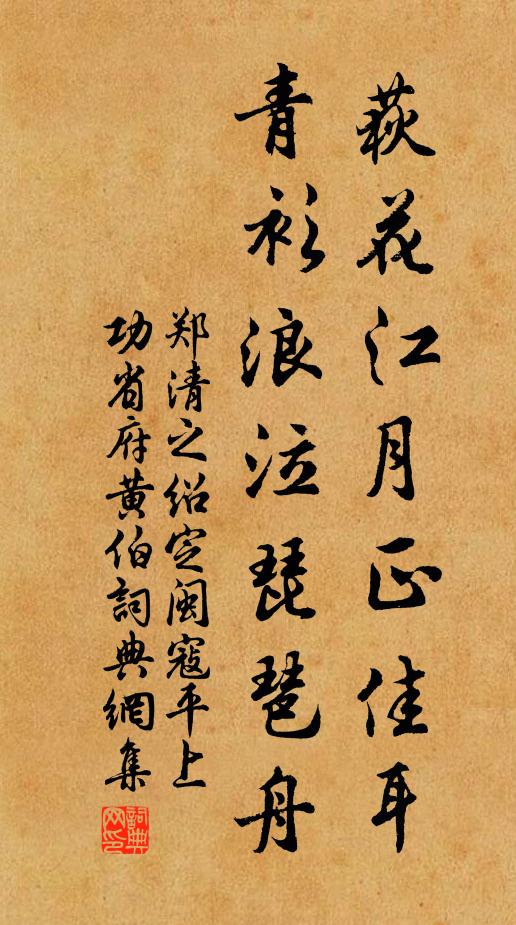 荻花江月正佳耳
青衫浪泣琵琶舟
郑清之绍定闽寇平上
功省府黄伯詞典網集
詞典网印